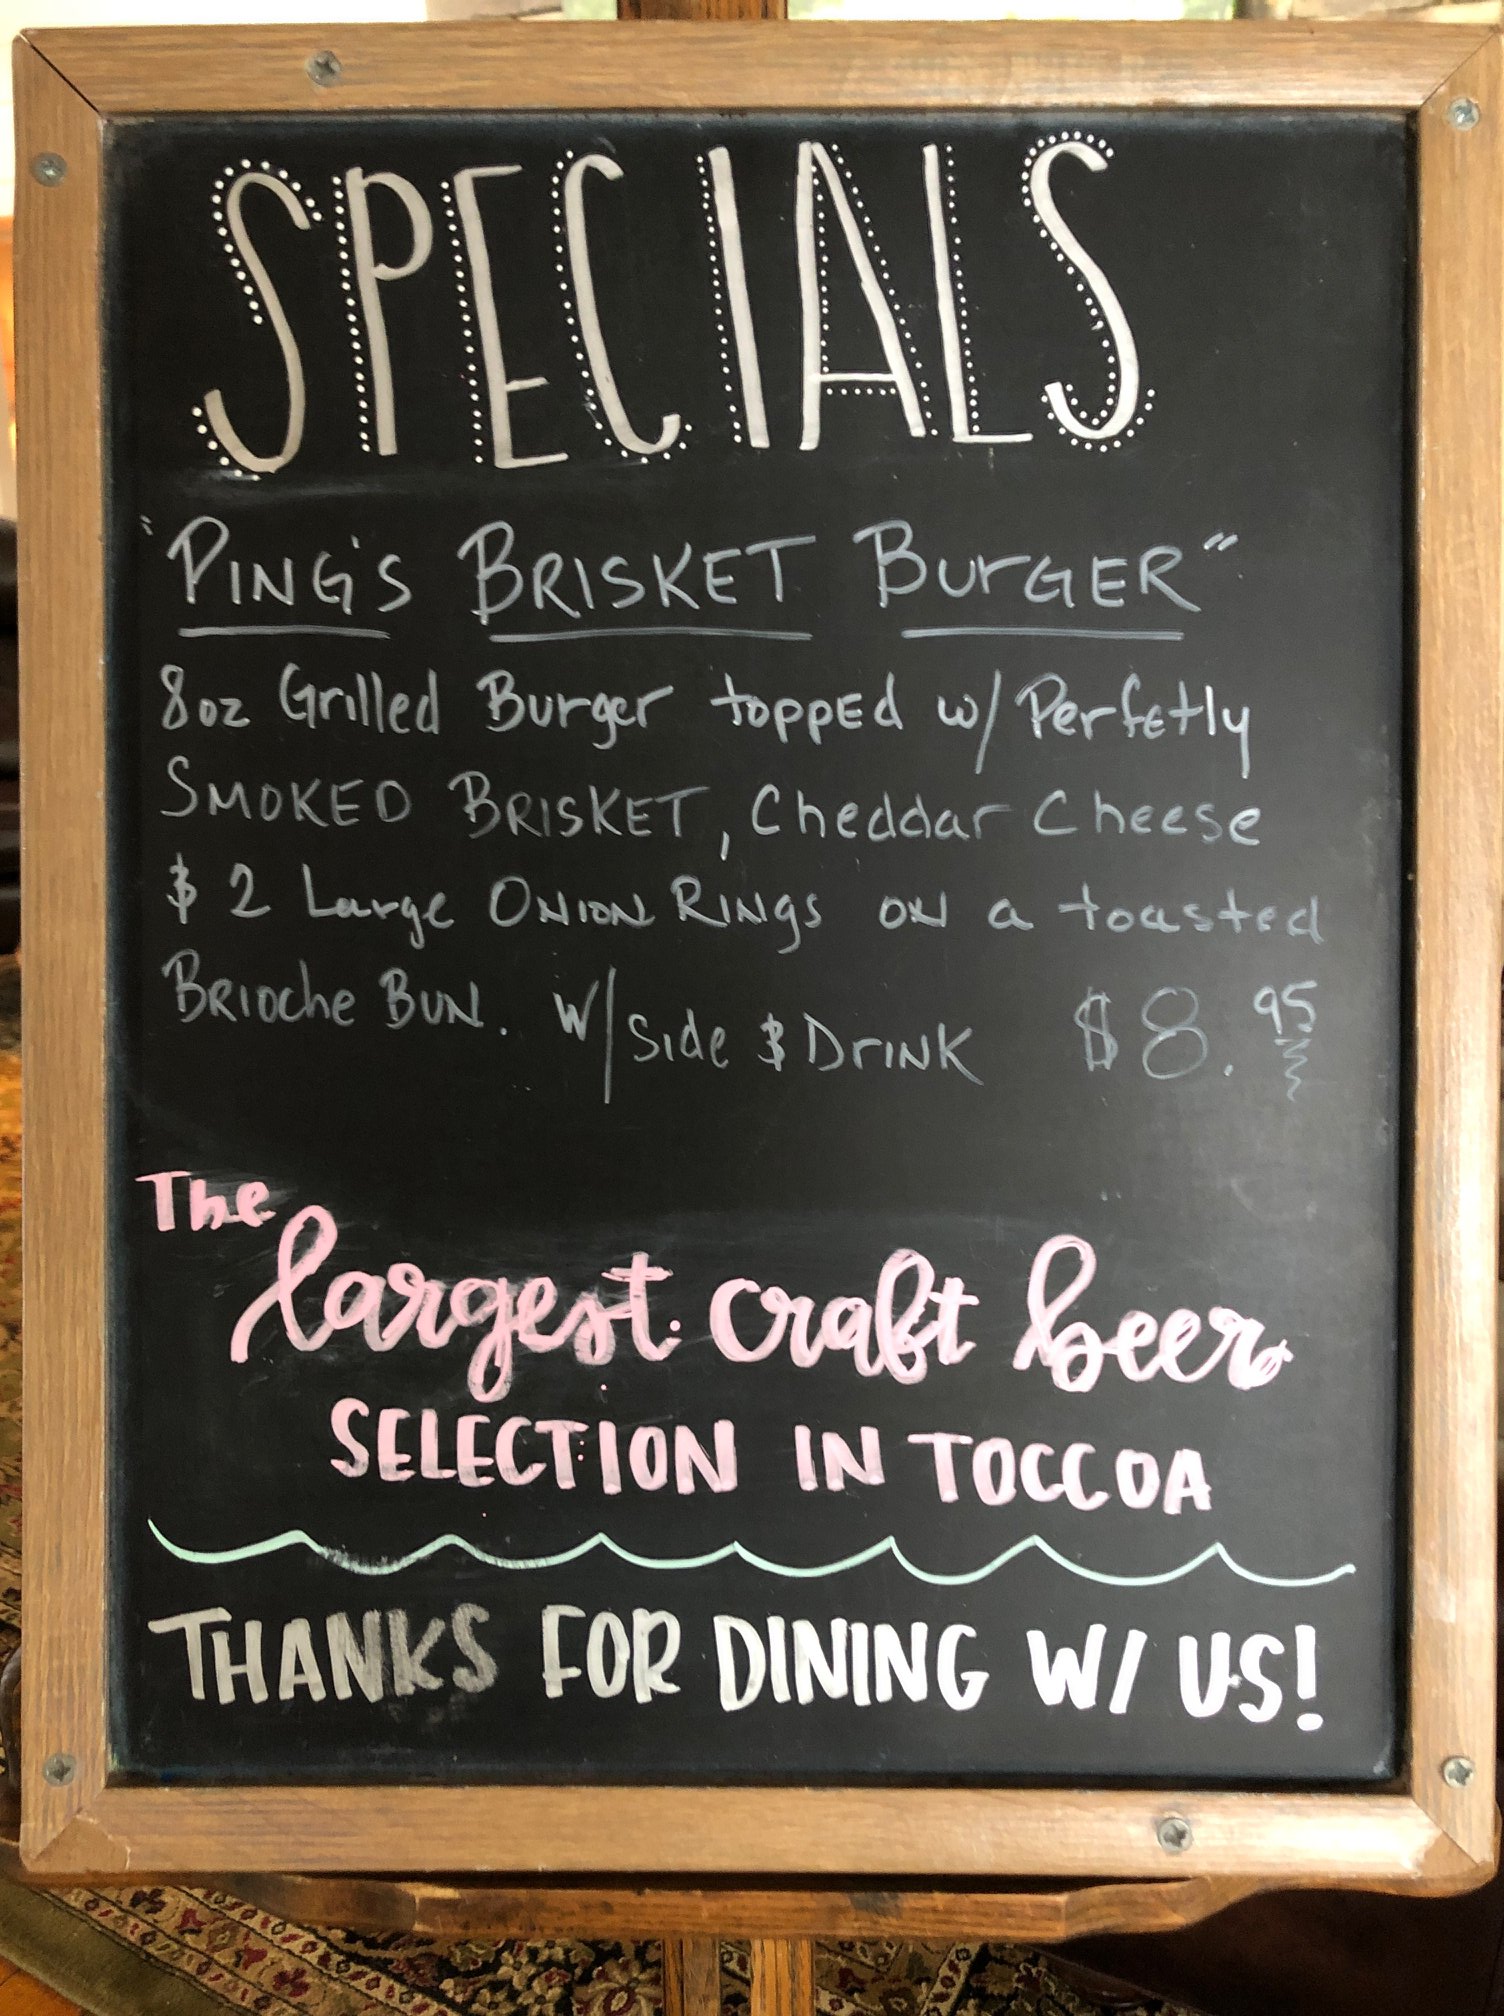 SPECIALS
"PING'S BRISKET BURGER"
8oz Grilled Burger topped w/ Perfetly
SMOKED BRISKET, Cheddar Cheese
& 2 Large ONION RINgs ON a toasted
BRIOche BUN. W/ Side & DrINK $8.95
The
largest craft beer
SELECTION IN TOCCOA
THANKS FOR DINING W/ US!